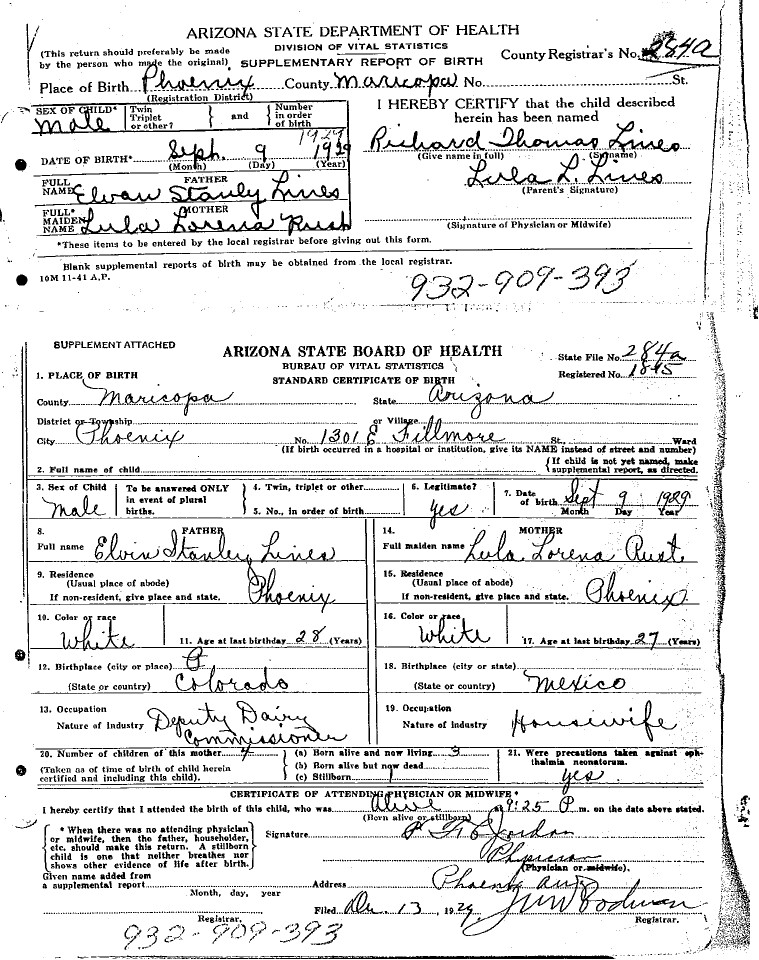 ARIZONA STATE DEPARTMENT OF HEALTH
DIVISION OF VITAL STATISTICS
(This return should preferably be made by the person who made the original)
SUPPLEMENTARY REPORT OF BIRTH
County Registrar's No. 284a
Place of Birth Phoenix County Maricopa No. St.
(Registration District)
SEX OF CHILD* Male
Twin Triplet or other? } and { Number in order of birth
1929
DATE OF BIRTH* Sept. 9 1929
(Month) (Day) (Year)
FATHER
FULL NAME Elvan Stanly Lines
MOTHER
FULL* MAIDEN NAME Lula Lorena Rush
I HEREBY CERTIFY that the child described
herein has been named
Richard Thomas Lines
(Give name in full) (Surname)
Lula L. Lines
(Parent's Signature)
(Signature of Physician or Midwife)
*These items to be entered by the local registrar before giving out this form.
Blank supplemental reports of birth may be obtained from the local registrar.
10M 11-41 A.P.
932-909-393
SUPPLEMENT ATTACHED
ARIZONA STATE BOARD OF HEALTH
BUREAU OF VITAL STATISTICS
STANDARD CERTIFICATE OF BIRTH
State File No. 284a
Registered No. 1845
1. PLACE OF BIRTH
County Maricopa State Arizona
District or Township or Village
City Phoenix No. 1301 E Fillmore St., Ward
(If birth occurred in a hospital or institution, give its NAME instead of street and number)
2. Full name of child { If child is not yet named, make supplemental report, as directed.
3. Sex of Child Male
To be answered ONLY in event of plural births.
4. Twin, triplet or other
5. No., in order of birth
6. Legitimate? Yes
7. Date of birth Sept 9 1929
Month Day Year
8. FATHER
Full name Elvin Stanley Lines
9. Residence
(Usual place of abode)
If non-resident, give place and state. Phoenix
10. Color or race White
11. Age at last birthday 28 (Years)
12. Birthplace (city or place)
(State or country) Colorado
13. Occupation
Nature of Industry Deputy Dairy Commissioner
14. MOTHER
Full maiden name Lula Lorena Rust
15. Residence
(Usual place of abode)
If non-resident, give place and state. Phoenix
16. Color or race White
17. Age at last birthday 27 (Years)
18. Birthplace (city or state)
(State or country) Mexico
19. Occupation
Nature of industry Housewife
20. Number of children of this mother 4
(Taken as of time of birth of child herein certified and including this child).
(a) Born alive and now living 3
(b) Born alive but now dead
(c) Stillborn 1
21. Were precautions taken against ophthalmia neonatorum. yes
CERTIFICATE OF ATTENDING PHYSICIAN OR MIDWIFE*
I hereby certify that I attended the birth of this child, who was Alive at 9:25 P m. on the date above stated.
(Born alive or stillborn)
* When there was no attending physician
or midwife, then the father, householder,
etc. should make this return. A stillborn
child is one that neither breathes nor
shows other evidence of life after birth.
Signature Jordan
Physician
(Physician or midwife).
Given name added from
a supplemental report
Month, day, year
Address Phoenix Ariz
Filed Dec. 13, 1929. Woodman
Registrar. Registrar.
932-909-393